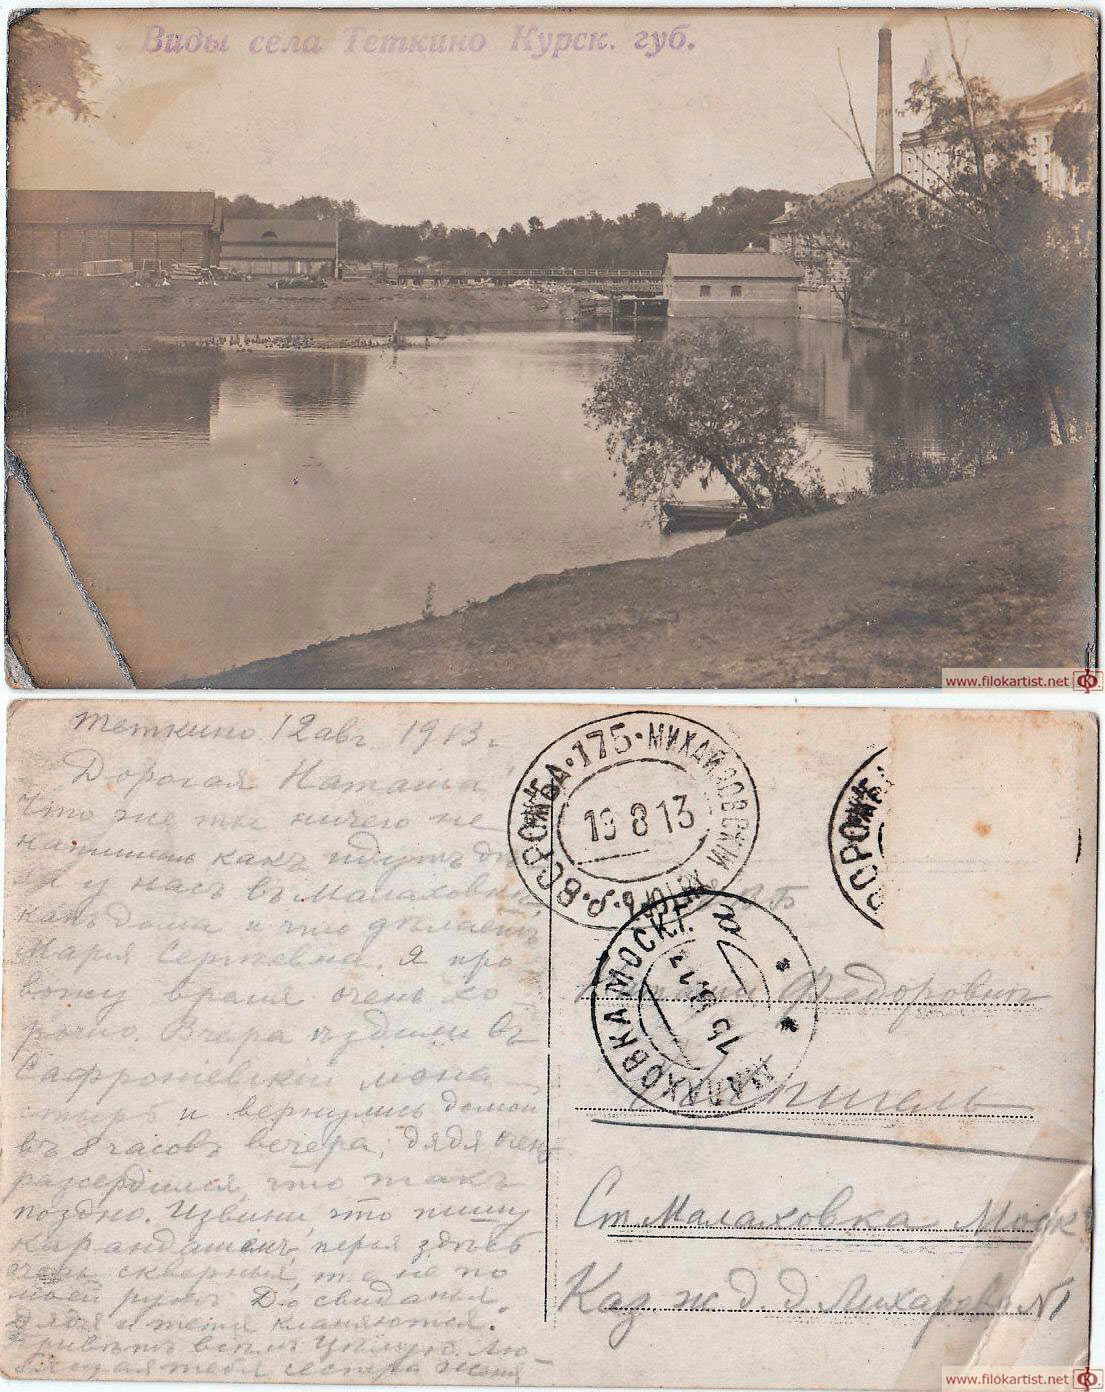 Виды села Теткино Курск. губ.
www.filokartist.net
Теткино 12 авг. 1913 г.
Дорогая Наташа!
Что же ты ничего не
напишешь какъ идутъ дѣ
ла у насъ въ Малаховкѣ,
какъ дома и что дѣлаетъ
Марія Сергѣевна. Я про-
вожу время очень хо-
рошо. Вчера ѣздили въ
Сафроньевскій мона
стырь и вернулись домой
въ 8 часовъ вечера, дядя
разсердился, что такъ
поздно. Извини, что пишу
карандашемъ, перья здѣсь
очень скверныя, не по
моей рукѣ. До свиданья.
Дядя и тетя кланяются.
Привѣтъ всѣмъ. Цѣлую. Лю
бящая тебя сестра Женя
ВОРОЖБА • 175 • МИХАЙЛОВСКІЙ ХУТ.
19 8 13
МАЛАХОВКА МОСК. Г.
а
15
ВОРОЖБА
Федоровнѣ
Ст. Малаховка Моск
Каз ж д д Лихарева №1
www.filokartist.net